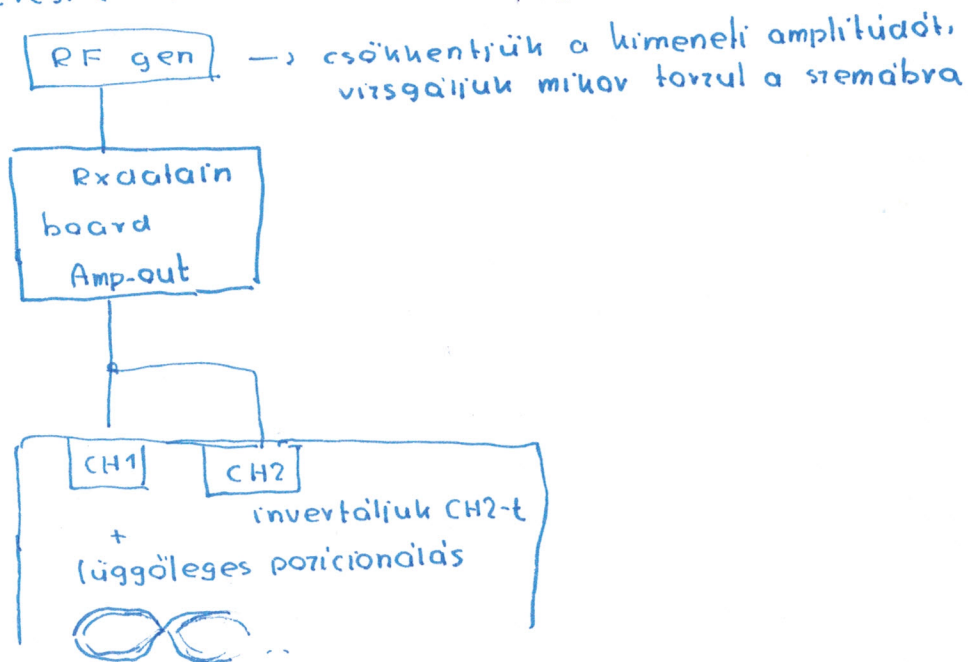 RF gen → csökkentjük a kimeneti amplitúdót,
vizsgáljuk mikor torzul a szemábra
board
Amp-out
CH1
CH2
invertáljuk CH2-t
+
függőleges pozícionálás